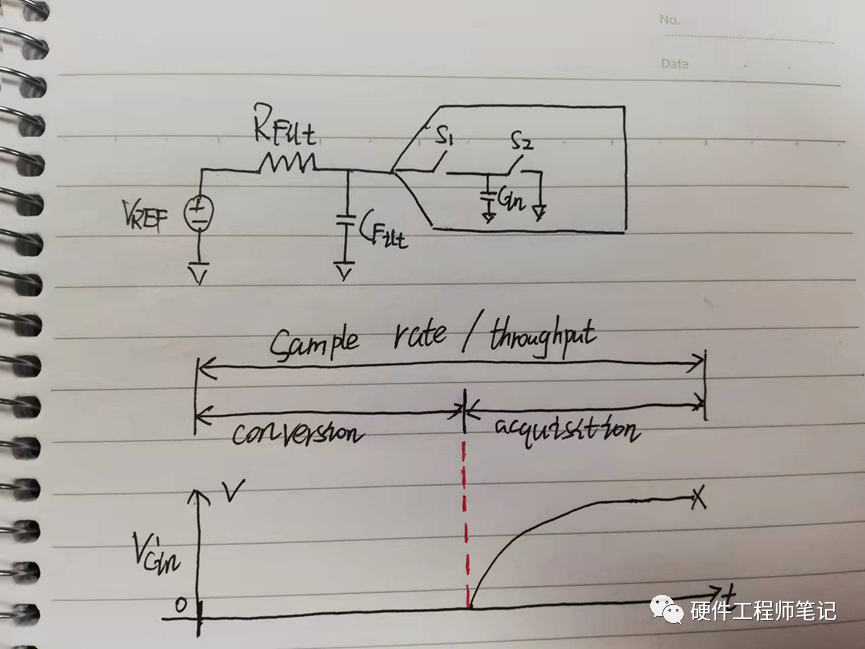 No.
Date
RFilt
S1
S2
VREF
+
-
Cin
CFilt
Sample rate / throughput
conversion
acquisition
V
VCin
0
t
硬件工程师笔记